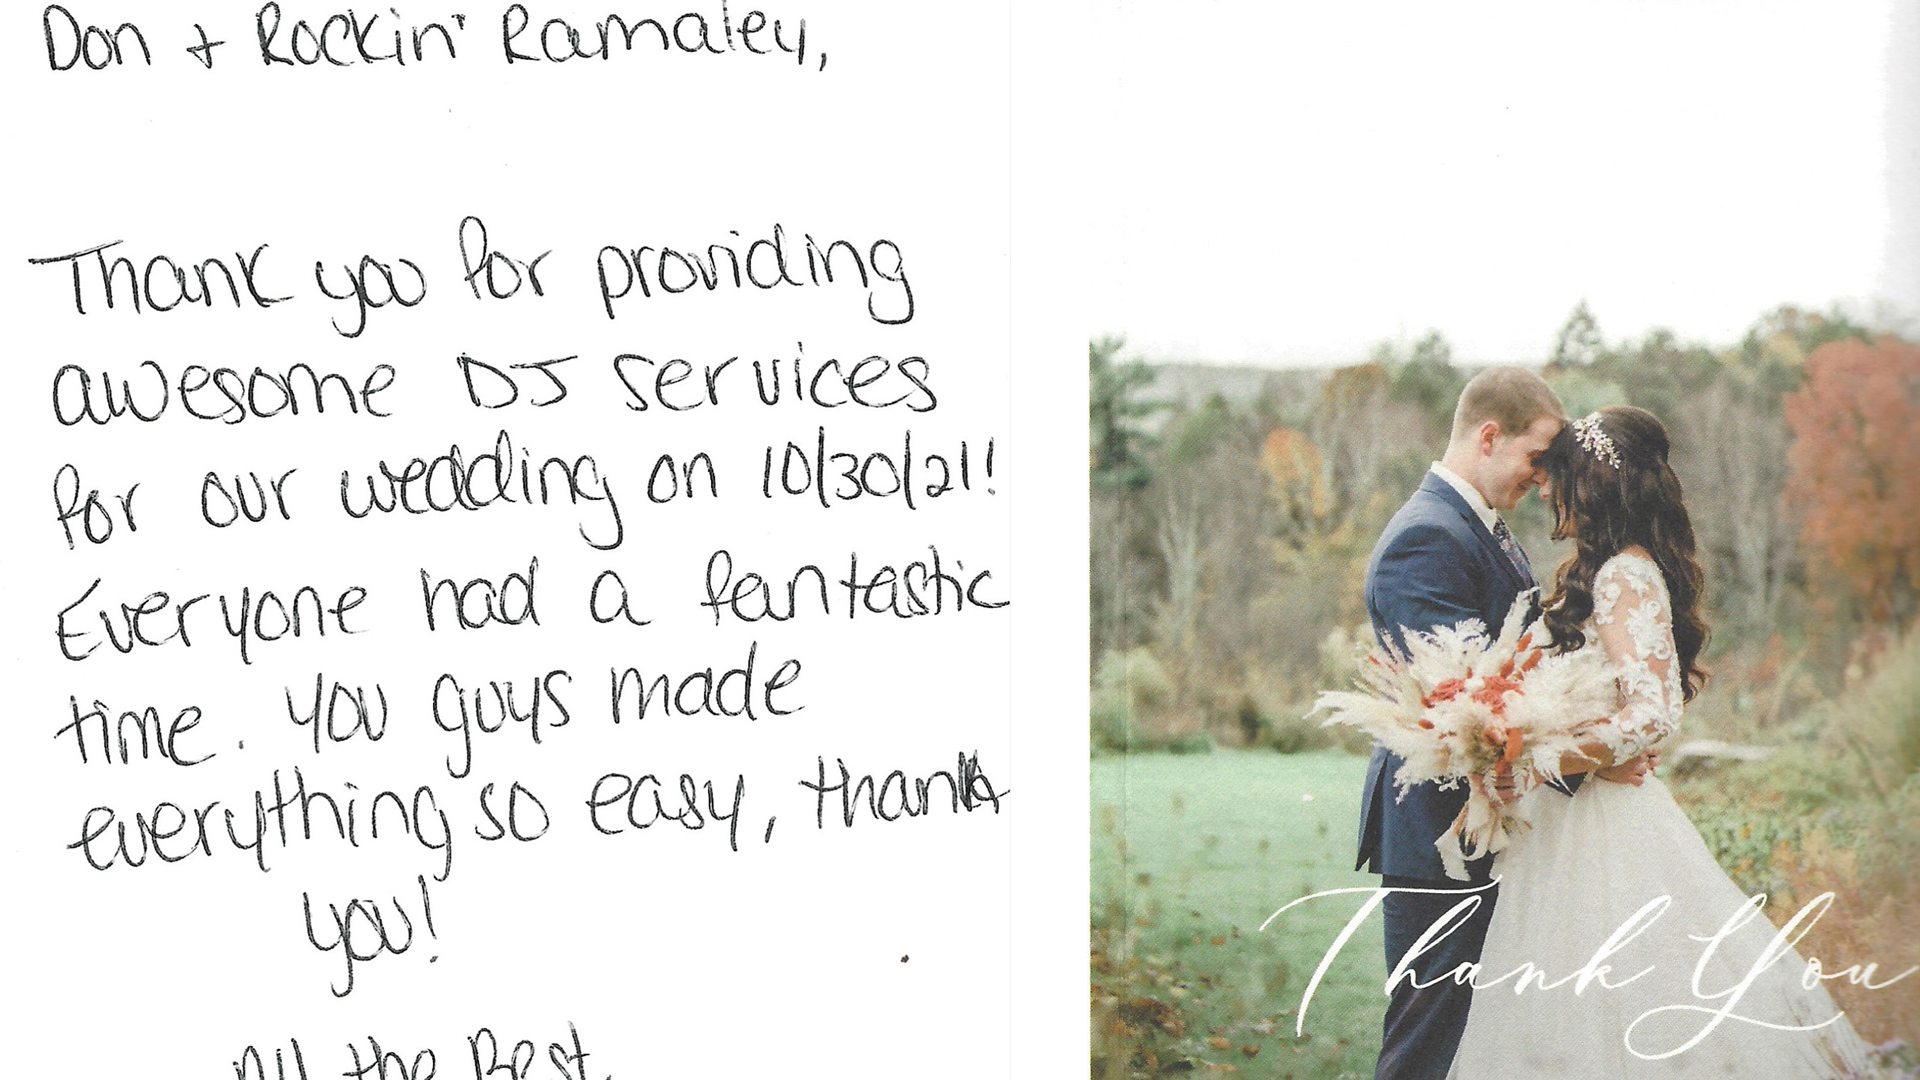 Don + Rockin' Ramaley,
Thank you for providing
awesome DJ services
for our wedding on 10/30/21!
Everyone had a fantastic
time. You guys made
everything so easy, thank
you!
All the Best,
Thank You